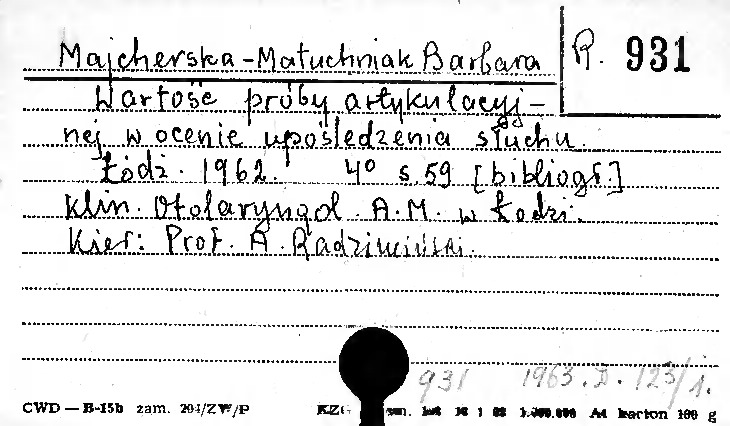 Majcherska-Matuchniak Barbara
R. 931
Wartość próby artykulacyj-
nej w ocenie upośledzenia słuchu.
Łódź. 1962. 4° s. 59 [bibliogr.]
Klin. Otolaryngol. A.M. w Łodzi.
Kier: Prof. A. Radzimiński.
931 1963.D. 123/1.
CWD — B-15b zam. 204/ZW/P KZG A4 karton 160 g